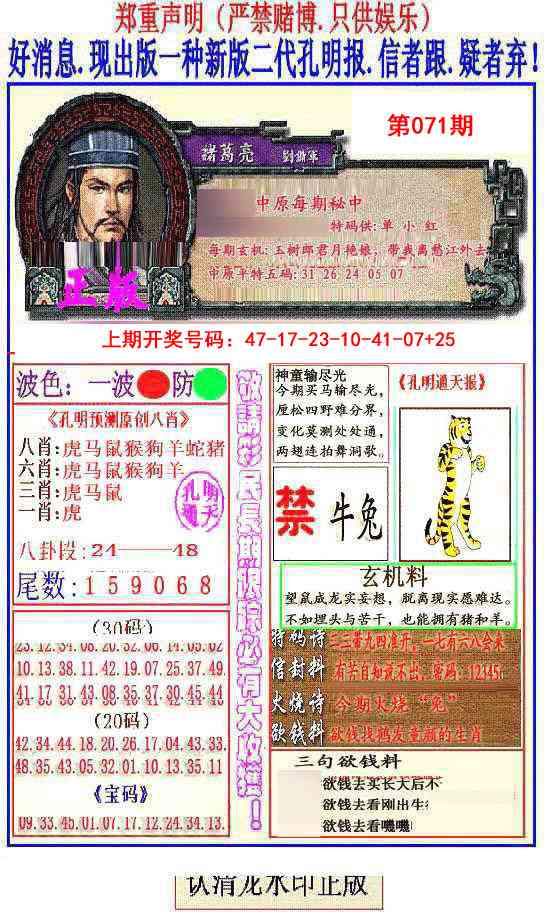 郑重声明（严禁赌博.只供娱乐）
好消息.现出版一种新版二代孔明报.信者跟.疑者弃!
第071期
諸葛亮 劉備軍
中原每期秘中
特码供:单 小 红
每期玄机:玉树郎君月艳娘,带我离愁江外去
中原平特五码:31 26 24 05 07
正版
上期开奖号码：47-17-23-10-41-07+25
波色：一波 防
《孔明预测原创八肖》
八肖:虎马鼠猴狗羊蛇猪
六肖:虎马鼠猴狗羊
三肖:虎马鼠
一肖:虎
孔明
通天
八卦段:24——48
尾数:159068
(30码)
23.12.34.08.20.32.06.14.03.02
10.13.38.11.42.19.07.25.37.49
41.17.31.43.08.35.37.30.45.44
(20码)
42.34.44.18.20.26.17.04.43.33.
48.35.43.05.32.01.10.13.35.11
《宝码》
09.33.45.01.07.17.12.24.34.13.
敬請彩民長期跟踪必有大收獲！
神童输尽光
今期买马输尽光,
厘松四野难分界,
变化莫测处处通,
两翅连拍舞洞歌。
《孔明通天报》
禁 牛兔
玄机料
望鼠成龙实妄想，脱离现实愿难达。
不如埋头与苦干，也能拥有猪和羊。
特码诗 二三带九四准开，一七有六八会来
信封料 有苦自如说不出，密码：12345
火烧诗 今期火烧“兔”
欲钱料 欲钱找鹤发童颜的生肖
三句欲钱料
欲钱去买长大后不
欲钱去看刚出生
欲钱去看嘰嘰
认清龙水印正版